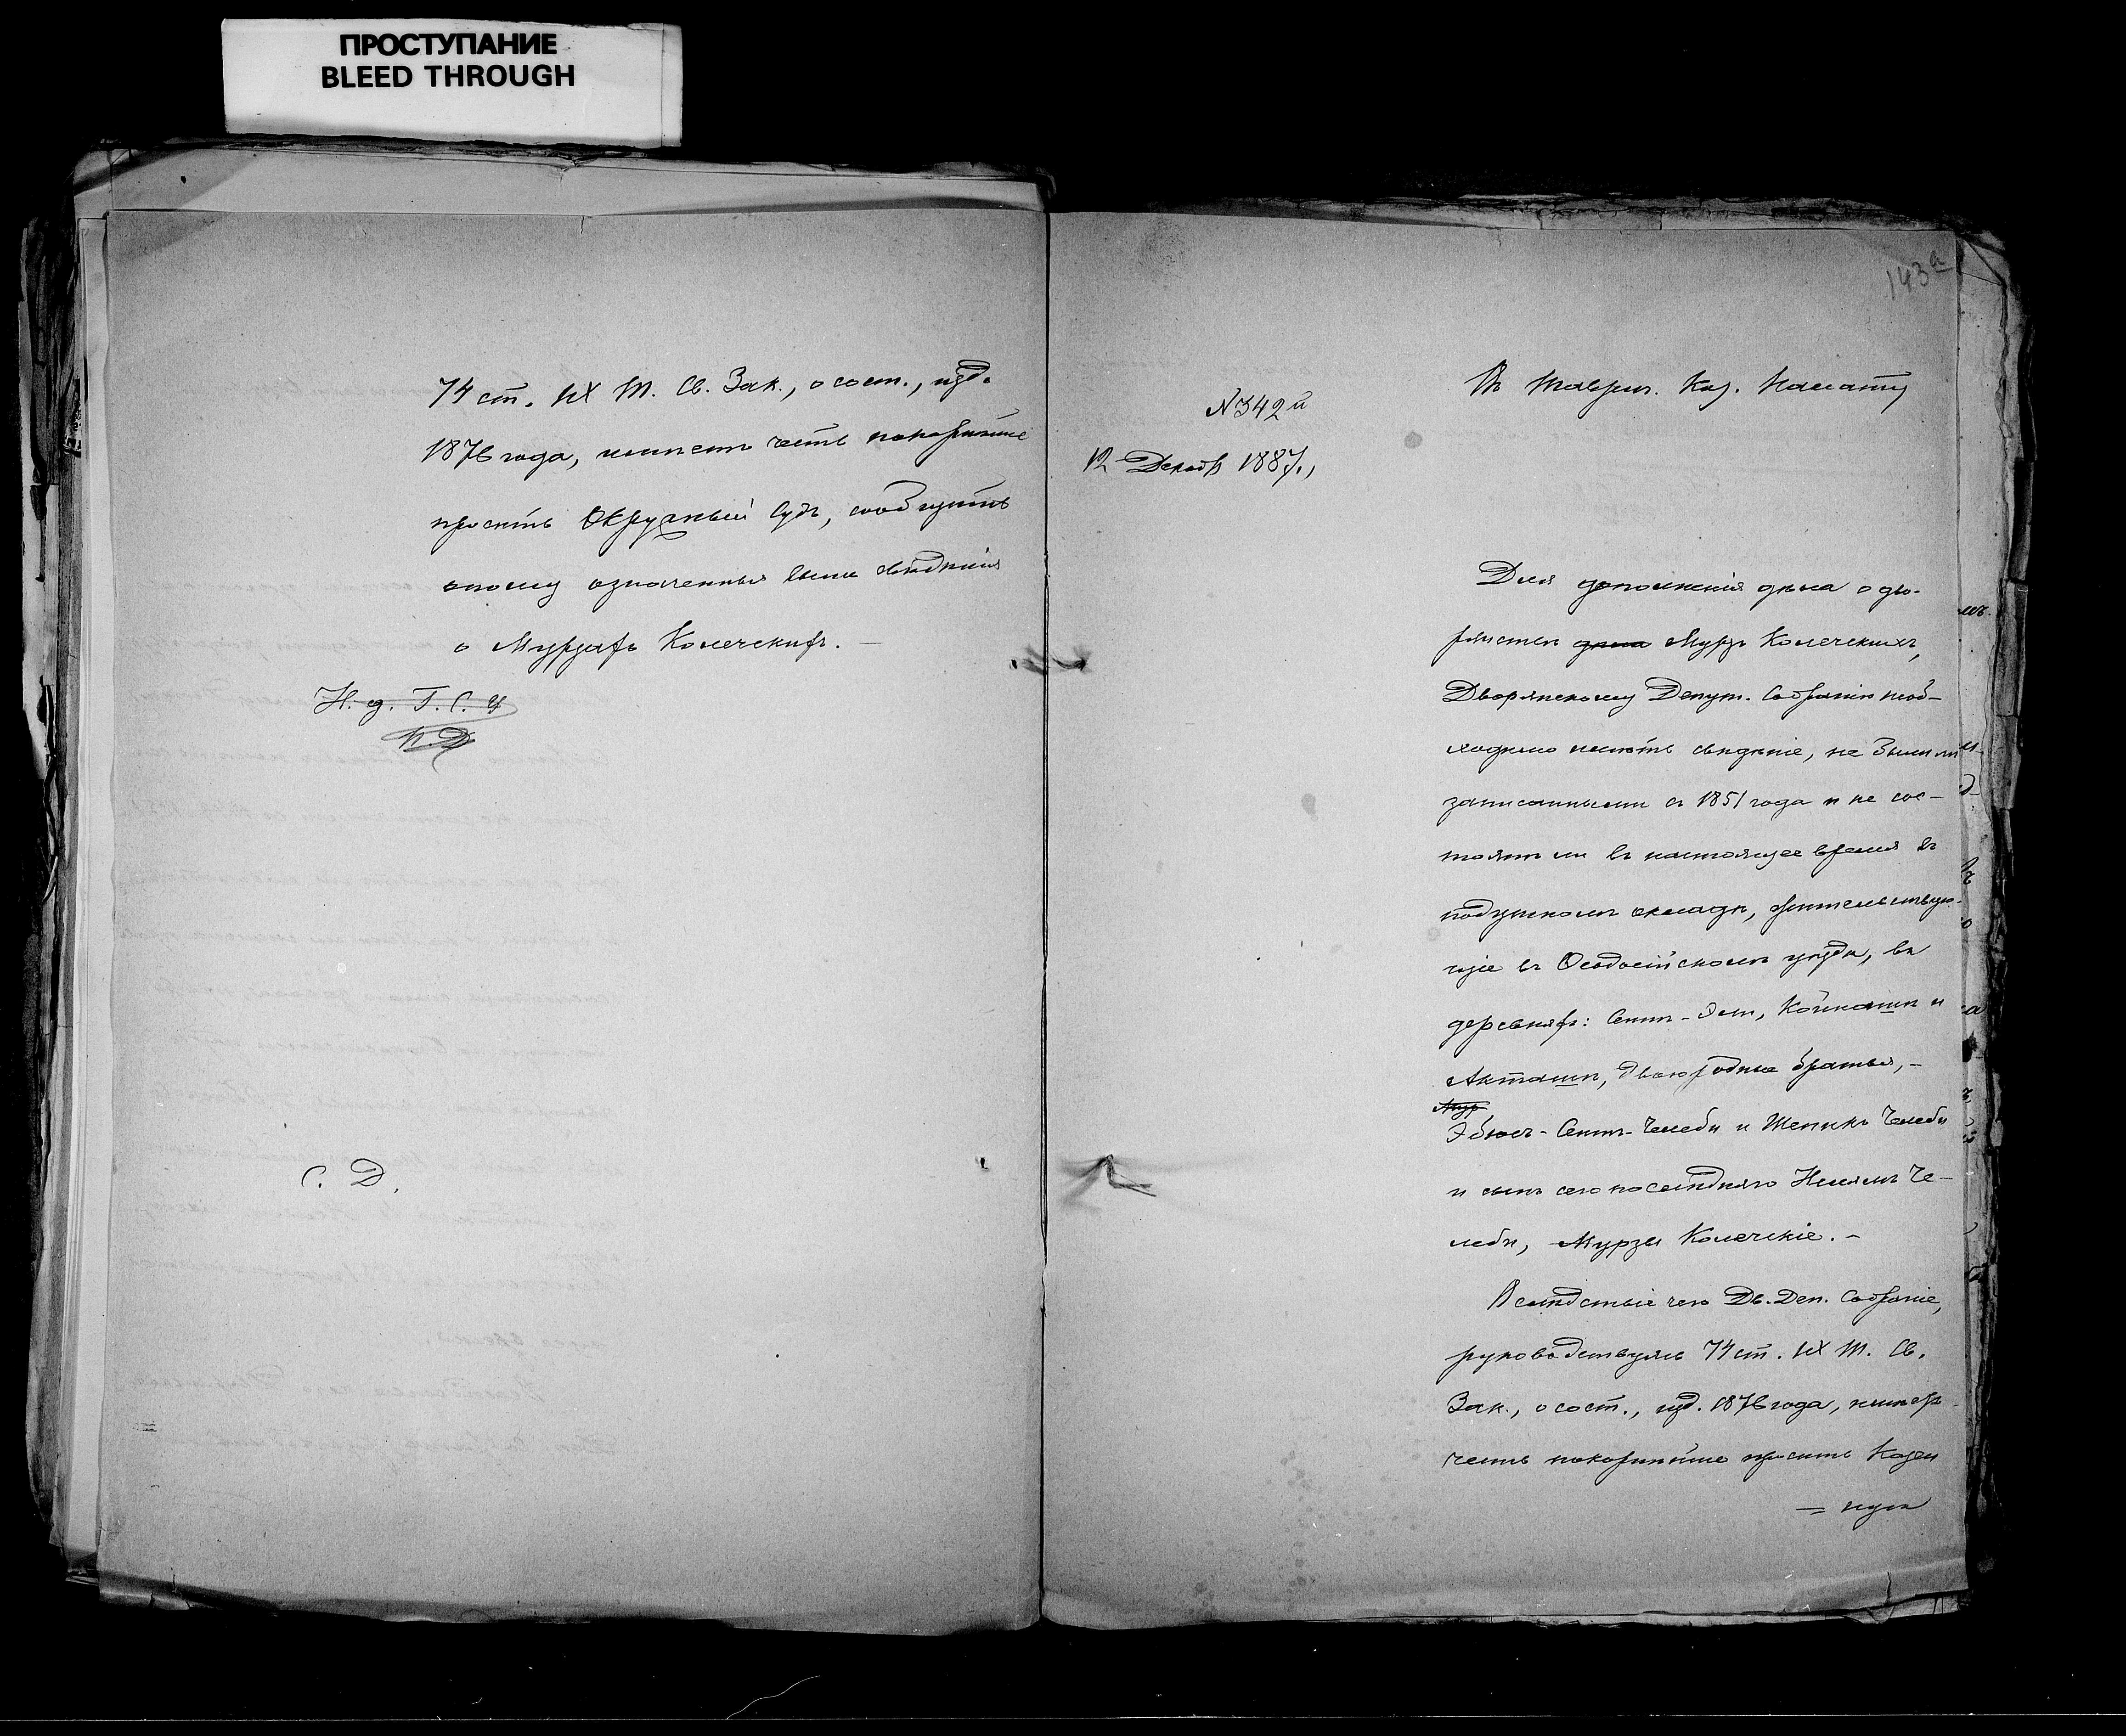 ПРОСТУПАНИЕ
BLEED THROUGH
74 ст. IX Т. Св. Зак., о сост., изд.
1876 года, имѣетъ честь покорнѣйше
просить Окружный Судъ, сообщить
оному означенныя выше свѣдѣнія
о Мурзахъ Колечскихъ. —
Н. д. Г. С. У
П. Д
С. Д.
143а
№ 342 й
12 Декабр 1887.,
Въ Таврич. Каз. Палату
Для дополненія дѣла о дво-
рянствѣ дѣла Мурзъ Колечскихъ,
Дворянскому Депут. Собранію необ-
ходимо имѣть свѣдѣніе, не были ли
записанными съ 1851 года и не сос-
тоятъ ли въ настоящее время въ
подушномъ окладѣ, жительствую-
щіе въ Ѳеодосійскомъ уѣздѣ, въ
деревняхъ: Сеитъ-Эли, Койкашѣ и
Акташѣ, двоюродные братья, –
Мур
Сеитъ-Челеби и Челеби
и сынъ сего послѣдняго Че-
леби, Мурзы Колечскіе. –
Вслѣдствіе чего Дв. Деп. Собраніе,
руководствуясь 74 ст. IX Т. Св.
Зак., о сост., изд. 1876 года, имѣетъ
честь покорнѣйше просить Казен
= ную